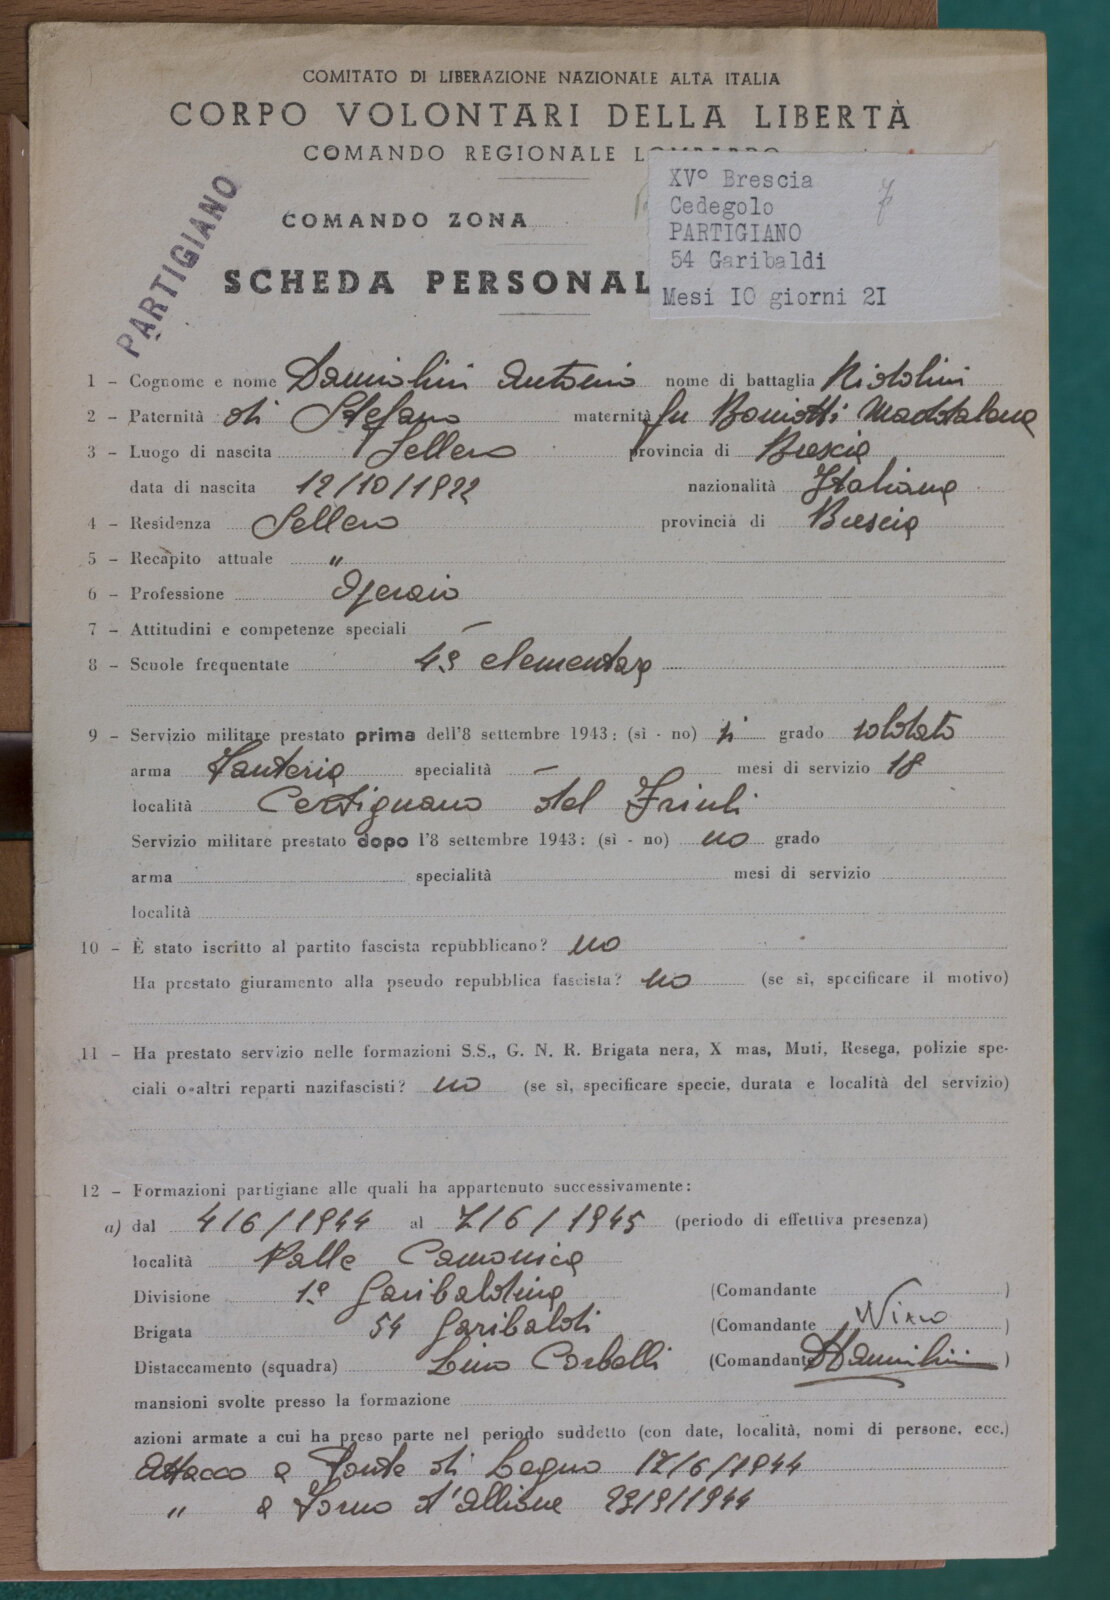 COMITATO DI LIBERAZIONE NAZIONALE ALTA ITALIA
CORPO VOLONTARI DELLA LIBERTÀ
COMANDO REGIONALE
XVº Brescia
Cedegolo
PARTIGIANO
54 Garibaldi
Mesi IO giorni 2I
PARTIGIANO
COMANDO ZONA
SCHEDA PERSONAL
1 - Cognome e nome Damiolini Antonio nome di battaglia
2 - Paternità di Stefano maternità fu Boniotti Maddalena
3 - Luogo di nascita Sellero provincia di Brescia
data di nascita 12/10/1922 nazionalità Italiana
4 - Residenza Sellero provincia di Brescia
5 - Recapito attuale "
6 - Professione Operaio
7 - Attitudini e competenze speciali –
8 - Scuole frequentate 4ª elementare
9 - Servizio militare prestato prima dell'8 settembre 1943: (sì - no) si grado soldato
arma Fanteria specialità – mesi di servizio 18
località Certignano del Friuli
Servizio militare prestato dopo l'8 settembre 1943: (sì - no) no grado
arma specialità mesi di servizio
località
10 - È stato iscritto al partito fascista repubblicano? no
Ha prestato giuramento alla pseudo repubblica fascista? no (se sì, specificare il motivo)
11 - Ha prestato servizio nelle formazioni S.S., G. N. R. Brigata nera, X mas, Muti, Resega, polizie spe-
ciali o altri reparti nazifascisti? no (se sì, specificare specie, durata e località del servizio)
12 - Formazioni partigiane alle quali ha appartenuto successivamente:
a) dal 4/6/1944 al 7/6/1945 (periodo di effettiva presenza)
località Valle Camonica
Divisione 1ª Garibaldina (Comandante )
Brigata 54 Garibaldi (Comandante Nino )
Distaccamento (squadra) Lino Corbelli (Comandante Damiolini )
mansioni svolte presso la formazione
azioni armate a cui ha preso parte nel periodo suddetto (con date, località, nomi di persone, ecc.)
Attacco a Ponte di Legno 17/6/1944
" a Forno d'Allione 29/9/1944